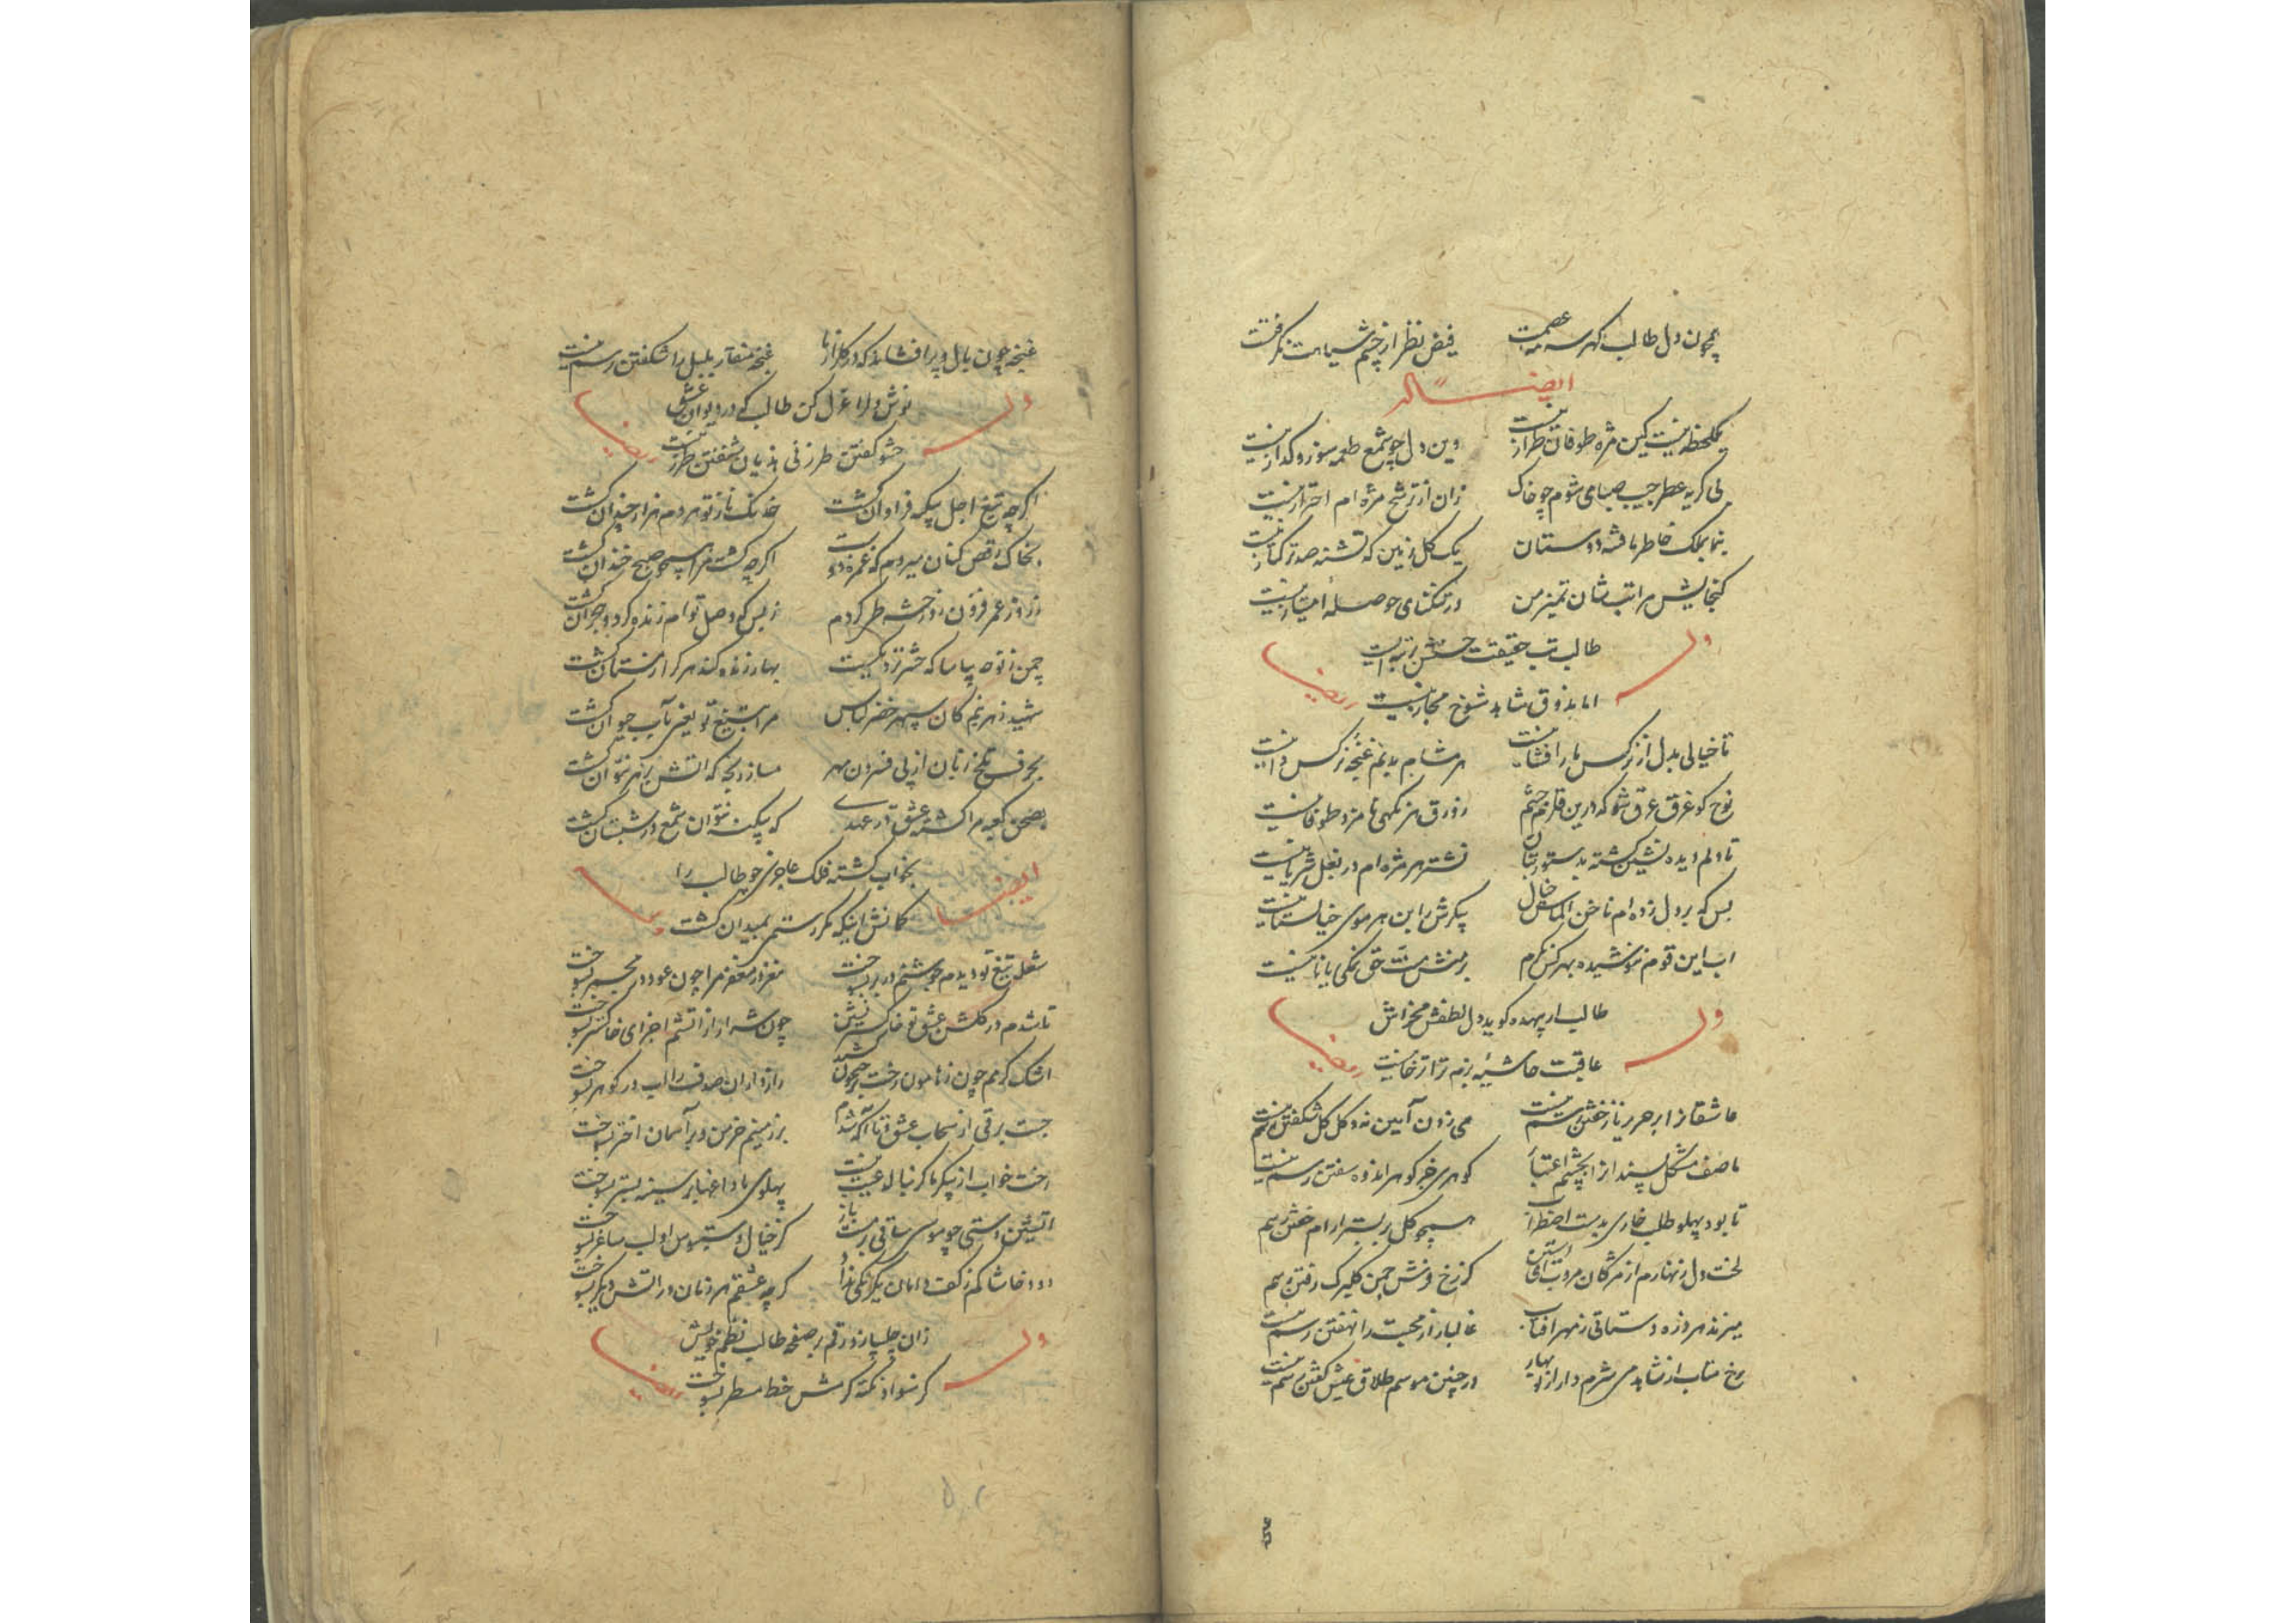 همچون دل طالب گهر سه عصمت فیض نظر از چشم سیاهت نگرفت
ایضاً له
یکلحظه نیست کین مژه طوفان طراز نیست وین دل چو شمع طعمه سوز و گداز نیست
بی گریه عطر جیب صبا می شوم چو خاک زان از ترشح مژه ام احتراز نیست
بنما بملک خاطر ما دوستان یک گل زمین که تشنه صد ترکتاز نیست
گنجایش مراتب شان تمیز من در تنگنای حوصله امتیاز نیست
طالب تب حقیقت حسنش رتبه ایست
اما بذوق شاهد شوخ مجاز نیست
وله ایضاً
تا خیالی بدل از نرگس یار افشا نیست هر مشامم بدنم غنچه نرگس دانیست
نوح کو غرق عرق شو که درین قلزم چشم زورق هر نگهی نامزد طوفانیست
تا دلم دیده نشین گشته بدستور بتان نشتر هر مژه ام در بغل شریانیست
بس که بر دل زده ام ناخن الماس خیال پیکرش را بن هر موی خیالستانیست
آب این قوم ننوشیده بهر کس نگرم بر منش منت حق نمکی یا نانیست
طالب ار بیهده گوید دل لطفش مخراش
عاقبت حاشیه بزم ترا ترخانیست
وله ایضاً
عاشقانرا بر حریر ناز خفتن رسم نیست می زدن آیین نه و گل گل شکفتن رسم نیست
ما صف مشکل پسند از را بچشم اعتبار گوهری جز گوهر اندوه سفتن رسم نیست
تا بود پهلو طلب خاری بدست اضطراب همچو گل بر بستر آرام خفتن رسم
لخت دل زنهارم از مژگان مروب ای آستین کز رخ و نش چمن گلبرگ رفتن رسم
میزند هر ذره دستانی ز مهر آفتاب غالبا راز محبت را نهفتن رسم نیست
رخ متاب از شاهد می شرم دار از نوبهار در چنین موسم طلاق عیش گفتن رسم نیست
غنچه چون بال و پر افشاند که در گلزار ما غنچه منقار بلبل را شکفتن رسم نیست
نوش دارا غزل کن طالب که در دیوان عشق
حشو گفتن طرز نی هذیان شنفتن طرز نیست
وله ایضاً
اگر چه تیغ اجل پیکر فراوان کشت خدنگ ناز تو هر دم هزار چندان کشت
بخاک رقص کنان میروم که غمزه دوست اگر چه کشت مرا همچو صبح خندان کشت
ز روز عمر فزون روز حشر طی کردم ز بس که وصل توام زنده کرد و هجران کشت
چمن ز نوحه بیاسا که حشر نزدیکست بهار زنده کند هر کرا زمستان کشت
شهید زهر نیم کان سپهر خضر لباس مرا بتیغ تو یعنی بآب حیوان کشت
بحرف تلخ زبان از پی فسردن مهر مساز رنجه که آتش بزهر نتوان کشت
بصحن کعبه مرا کشته عشق در عهدی که بیگنه نتوان شمع در شبستان کشت
بخواب کشته فلک عاجزی چو طالب را
گمانش اینکه مگر رستمی بمیدان کشت
ایضاً وله
شعله تیغ تو دیدم جوشنم در بر بسوخت مغز در مغفر مرا چون عود در مجمر بسوخت
تا شدم در گلشن عشق تو خاکستر نشین چون شرار از آتشم اجزای خاکستر بسوخت
اشک گرمم چون ز هامون رخت بر جیحون کشید رازداران صدف را آب در گوهر بسوخت
جست برقی از سحاب عشق و تا آگه شدم بر زمینم خرمن و بر آسمان اختر بسوخت
رخت خواب از پیکر ما گر نیالاید عیب نیست پهلوی ما داغهای سینه بستر بسوخت
آتشین دستی چو موسی ساقی بزمست باز کز خیال دستبوس او لب ساغر بسوخت
دود خاشاکم ز کف دامان یکرنگی نداد گر چه عشقم هر زمان در آتش دیگر بسوخت
زان چلیپا زد رقم بر صفحه طالب نظم خویش
کز سواد نکته گرمش خط مسطر بسوخت
وله ایضاً